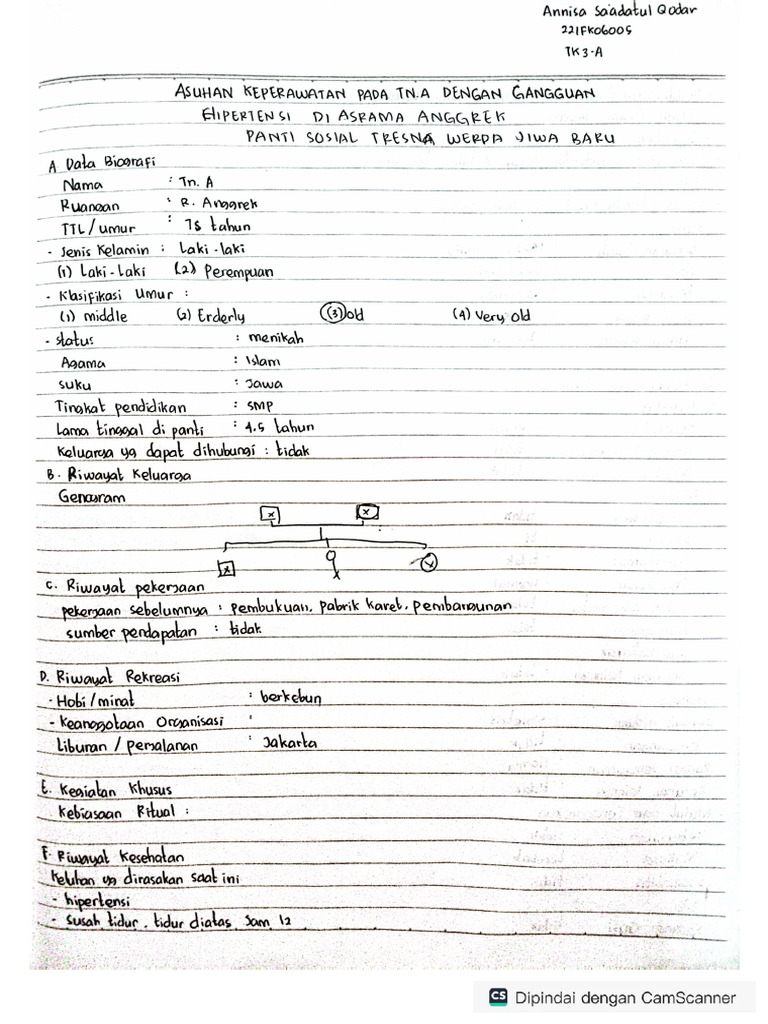 Annisa Sa'adatul Qodar
221FK06005
TK 3-A
ASUHAN KEPERAWATAN PADA TN.A DENGAN GANGGUAN
HIPERTENSI DI ASRAMA ANGGREK
PANTI SOSIAL TRESNA WERDA JIWA BARU
A Data Biografi
Nama : Tn. A
Ruangan : R. Anggrek
TTL / umur : 75 tahun
- Jenis Kelamin : Laki-laki
(1) Laki-Laki (2) Perempuan
- Klasifikasi Umur :
(1) middle (2) Erderly (3) old (4) Very old
- status : menikah
Agama : Islam
suku : Jawa
Tingkat pendidikan : SMP
Lama tinggal di panti : 4.5 tahun
Keluarga yg dapat dihubungi : tidak
B. Riwayat Keluarga
Genogram
x x
x x
C. Riwayat pekerjaan
pekerjaan sebelumnya : Pembukuan, pabrik karet, pembangunan
sumber pendapatan : tidak
D. Riwayat Rekreasi
- Hobi / minat : berkebun
- Keanggotaan Organisasi :
Liburan / perjalanan : Jakarta
E. Kegiatan Khusus
Kebiasaan Ritual :
F. Riwayat Kesehatan
Keluhan yg dirasakan saat ini
- hipertensi
- Susah tidur, tidur diatas Jam 12
CS Dipindai dengan CamScanner